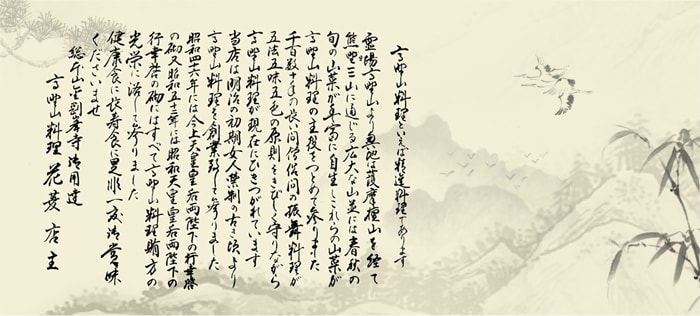 高野山料理といえば精進料理であります
霊場高野山より奥地は護摩壇山を経て
熊野三山に通じる広大な山並には春秋の
旬の山菜が豊富に自生しこれらの山菜が
高野山料理の主役をつとめて参りました
千百数十年の長い間僧侶間の振舞料理が
五法五味五色の原則をきびしく守りながら
高野山料理が現在にひきつがれています
当店は明治の初期女人禁制の古き頃より
高野山料理を創業致して参りました
昭和四六年には今上天皇皇后両陛下の行幸啓
の砌又昭和五十二年には昭和天皇皇后両陛下の
行幸啓の砌にはすべて高野山料理賄方の
光栄に浴して参りました
健康食に長寿食に是非一度御賞味
くださいませ
総本山金剛峯寺御用達
高野山料理 花菱 店主